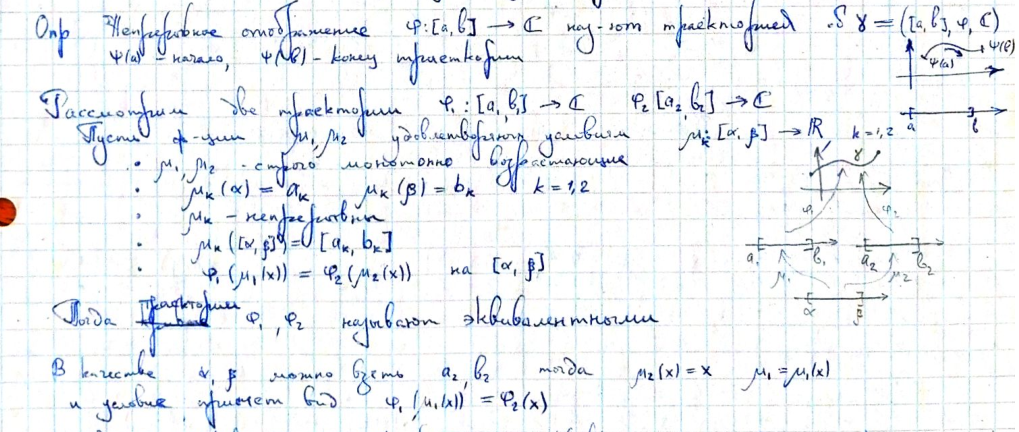 Опр Непрерывное отображение φ: [a, b] → ℂ наз-ют траекторией. γ = ([a, b], φ, ℂ)
φ(a) - начало, φ(b) - конец траектории
φ(a) φ(b)
a b
Рассмотрим две траектории φ₁: [a₁, b₁] → ℂ φ₂ [a₂ b₂] → ℂ
Пусть ф-ции μ₁, μ₂ удовлетворяют условиям μₖ: [α, β] → ℝ k = 1,2
• μ₁, μ₂ - строго монотонно возрастающие
• μₖ(α) = aₖ μₖ(β) = bₖ k = 1,2
• μₖ - непрерывны
• μₖ([α, β]) = [aₖ, bₖ]
• φ₁(μ₁(x)) = φ₂(μ₂(x)) на [α, β]
γ
φ₁ φ₂
a₁ b₁ a₂ b₂
μ₁ μ₂
α β
Тогда траектории φ₁, φ₂ называют эквивалентными
В качестве α, β можно взять a₂, b₂ тогда μ₂(x) = x μ₁ = μ₁(x)
и условие примет вид φ₁(μ₁(x)) = φ₂(x)